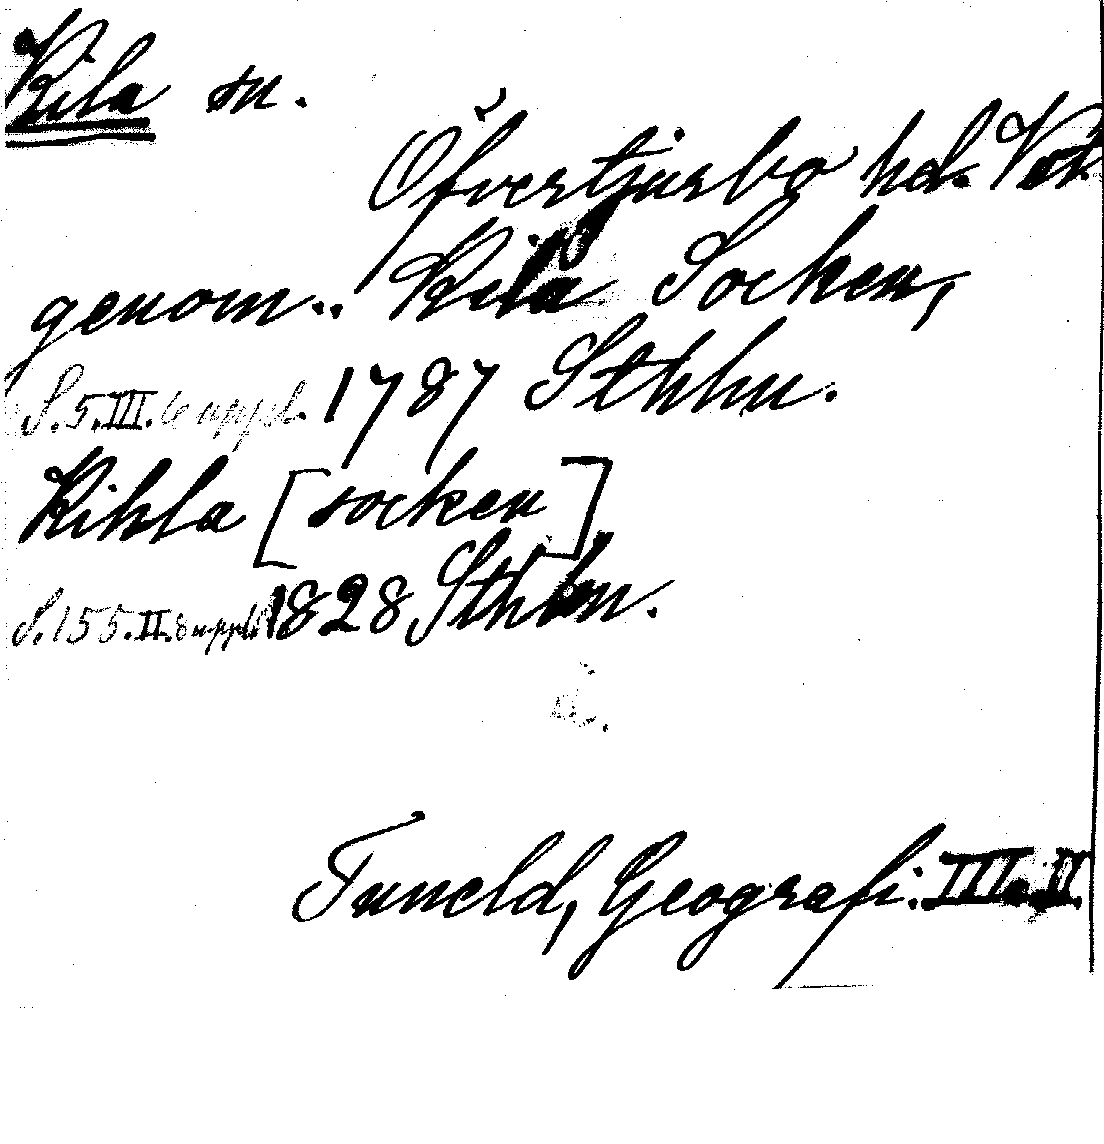 Kila sn.
Öfvertjurbo hd. Vst.
genom.. Kila Socken,
S. 5. III. 6 uppl. 1787 Sthlm.
Kihla [socken]
S. 155. II. 8 uppl. 1828 Sthlm.
Tuneld, Geografi. III. II.